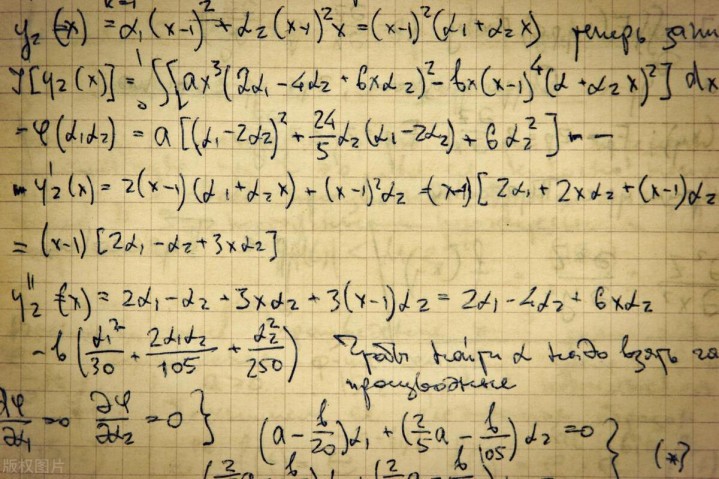 y₂(x) = α₁(x-1)² + α₂(x-1)²x = (x-1)²(α₁+α₂x) теперь
J[y₂(x)] = ₀∫¹[ax³(2α₁-4α₂+6xα₂)² - bx(x-1)⁴(α+α₂x)²] dx
-φ(α₁α₂) = a[(α₁-2α₂)² + 24/5 α₂(α₁-2α₂) + 6α₂²] - -
y₂'(x) = 2(x-1)(α₁+α₂x) + (x-1)²α₂ = (x-1)[2α₁+2xα₂+(x-1)α₂
= (x-1)[2α₁-α₂+3xα₂]
y₂''(x) = 2α₁-α₂+3xα₂+3(x-1)α₂ = 2α₁-4α₂+6xα₂
-b(α₁²/30 + 2α₁α₂/105 + α₂²/250) Чтобы найти α надо взять
производные
∂φ/∂α₁ = 0 ∂φ/∂α₂ = 0 }
(a - b/20)α₁ + (2/5 a - b/105)α₂ = 0 } (*)
版权图片